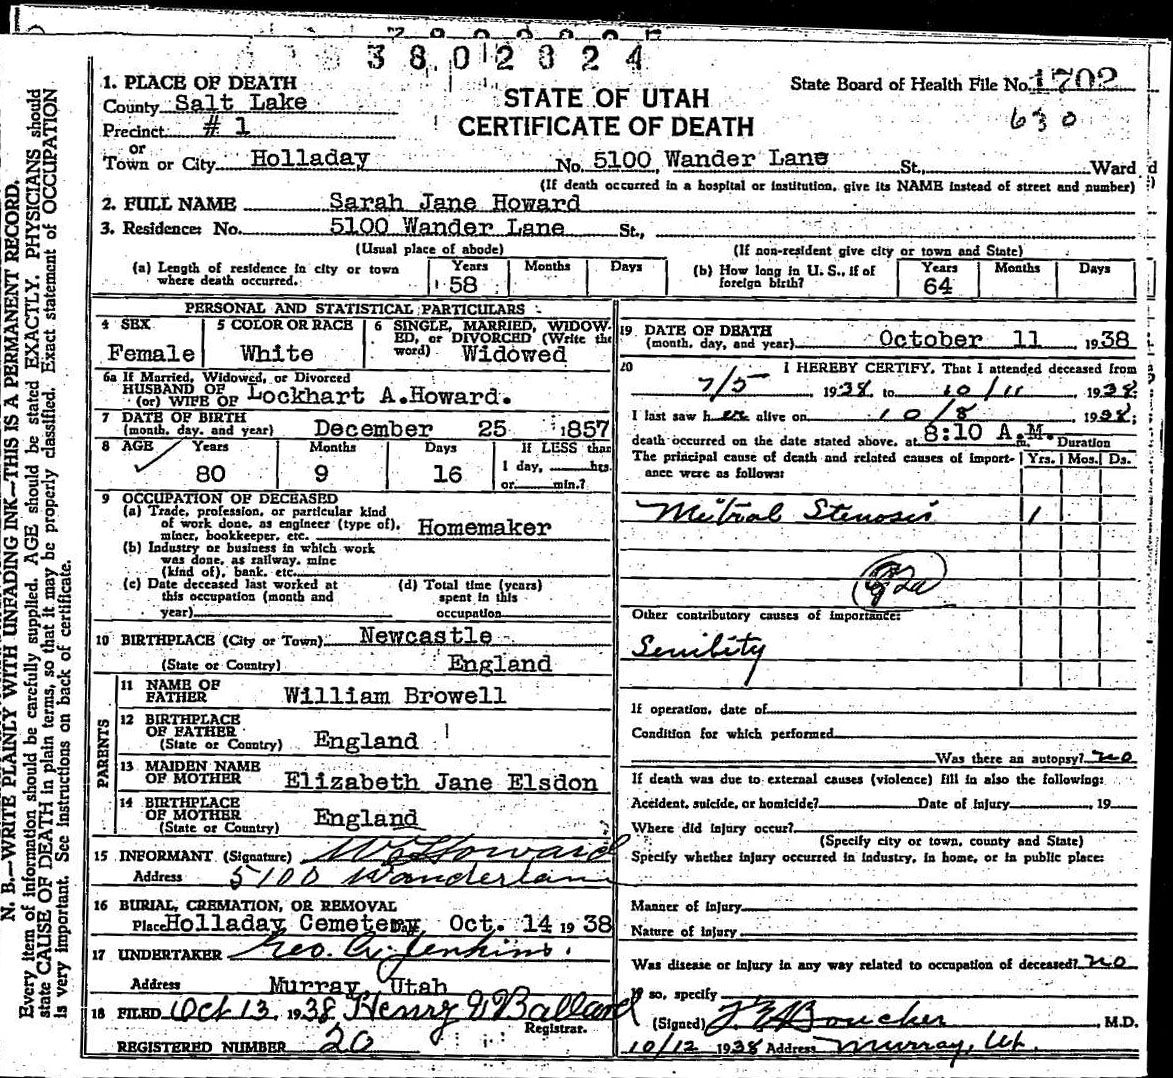 3802024
1. PLACE OF DEATH
State Board of Health File No. 1702
County Salt Lake
STATE OF UTAH
630
Precinct # 1
CERTIFICATE OF DEATH
or
Town or City Holladay No. 5100 Wander Lane St., Ward
(If death occurred in a hospital or institution, give its NAME instead of street and number)
2. FULL NAME Sarah Jane Howard
3. Residence: No. 5100 Wander Lane St.,
(Usual place of abode) (If non-resident give city or town and State)
(a) Length of residence in city or town where death occurred. Years 58 Months Days
(b) How long in U. S., if of foreign birth? Years 64 Months Days
PERSONAL AND STATISTICAL PARTICULARS
4 SEX Female
5 COLOR OR RACE White
6 SINGLE, MARRIED, WIDOWED, or DIVORCED (Write the word) Widowed
6a If Married, Widowed, or Divorced
HUSBAND OF
(or) WIFE OF Lockhart A.Howard.
7 DATE OF BIRTH
(month, day, and year) December 25 1857
8 AGE Years 80 Months 9 Days 16
If LESS than
1 day, hrs.
or min.?
9 OCCUPATION OF DECEASED
(a) Trade, profession, or particular kind
of work done, as engineer (type of),
miner, bookkeeper, etc. Homemaker
(b) Industry or business in which work
was done, as railway, mine
(kind of), bank, etc.
(c) Date deceased last worked at
this occupation (month and
year)
(d) Total time (years)
spent in this
occupation
10 BIRTHPLACE (City or Town) Newcastle
(State or Country) England
PARENTS
11 NAME OF
FATHER William Browell
12 BIRTHPLACE
OF FATHER
(State or Country) England
13 MAIDEN NAME
OF MOTHER Elizabeth Jane Elsdon
14 BIRTHPLACE
OF MOTHER
(State or Country) England
15 INFORMANT (Signature) Howard
Address 5100 Wanderlane
16 BURIAL, CREMATION, OR REMOVAL
Place Holladay Cemetery Oct. 14 1938
17 UNDERTAKER Geo. A. Jenkins
Address Murray Utah
18 FILED Oct 13, 1938 Henry W Ballard
Registrar.
REGISTERED NUMBER 20
19 DATE OF DEATH
(month, day, and year) October 11 1938
20 I HEREBY CERTIFY, That I attended deceased from
7/5 1938, to 10/11 1938
I last saw her alive on 10/8 1938;
death occurred on the date stated above, at 8:10 A.M.
Duration
The principal cause of death and related causes of importance were as follows: Yrs. Mos. Ds.
Mitral Stenosis 1
Other contributory causes of importance:
Senility
If operation, date of
Condition for which performed
Was there an autopsy? no
If death was due to external causes (violence) fill in also the following:
Accident, suicide, or homicide? Date of injury 19
Where did injury occur?
(Specify city or town, county and State)
Specify whether injury occurred in industry, in home, or in public place:
Manner of injury
Nature of injury
Was disease or injury in any way related to occupation of deceased? no
so, specify
(Signed) Boucher, M.D.
10/12 1938 Address Murray, Ut.
N. B.—WRITE PLAINLY WITH UNFADING INK—THIS IS A PERMANENT RECORD.
Every item of information should be carefully supplied. AGE should be stated EXACTLY. PHYSICIANS should
state CAUSE OF DEATH in plain terms, so that it may be properly classified. Exact statement of OCCUPATION
is very important. See instructions on back of certificate.